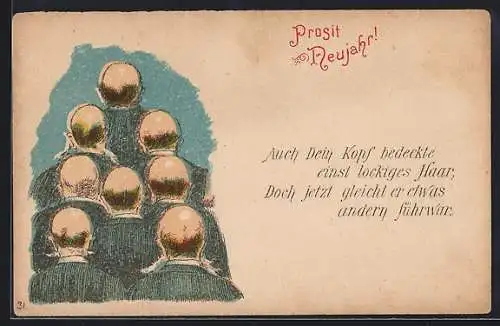 Prosit
Neujahr!
Auch Dein Kopf bedeckte
einst lockiges Haar,
Doch jetzt gleicht er etwas
andern führwar.
31